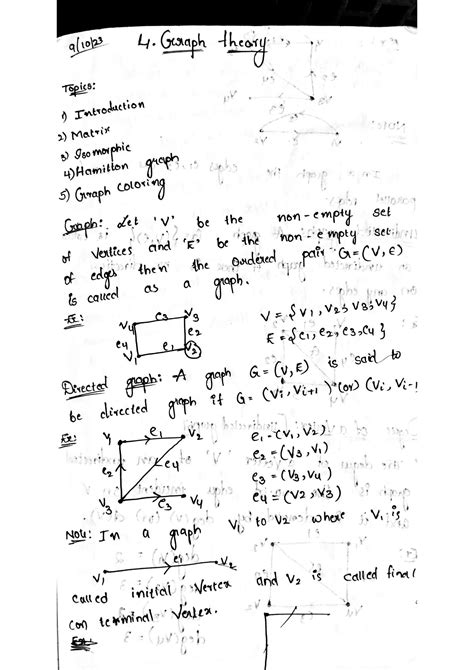 9/10/23
4. Graph theory
Topics:
1) Introduction
2) Matrix
3) Isomorphic
4) Hamilton graph
5) Graph coloring
Graph: Let 'V' be the non-empty set
of vertices and 'E' be the non-empty set
of edges then the ordered pair G=(V,E)
is called as a graph.
Ex:
V4 e3 V3
e4 e2
V1 e1 V2
V = {V1, V2, V3, V4}
E = {e1, e2, e3, e4}
Directed graph: A graph G = (V,E) is said to
be directed graph if G = (Vi, Vi+1) (or) (Vi, Vi-1
Ex:
V1 e1 V2
e2 e4
V3 e3 V4
e1 - (V1, V2)
e2 = (V3, V1)
e3 = (V3, V4)
e4 = (V2, V3)
Note: In a graph V1 to V2 where V1 is
V1 e1 V2
called initial Vertex and V2 is called final
(or) terminal Vertex.